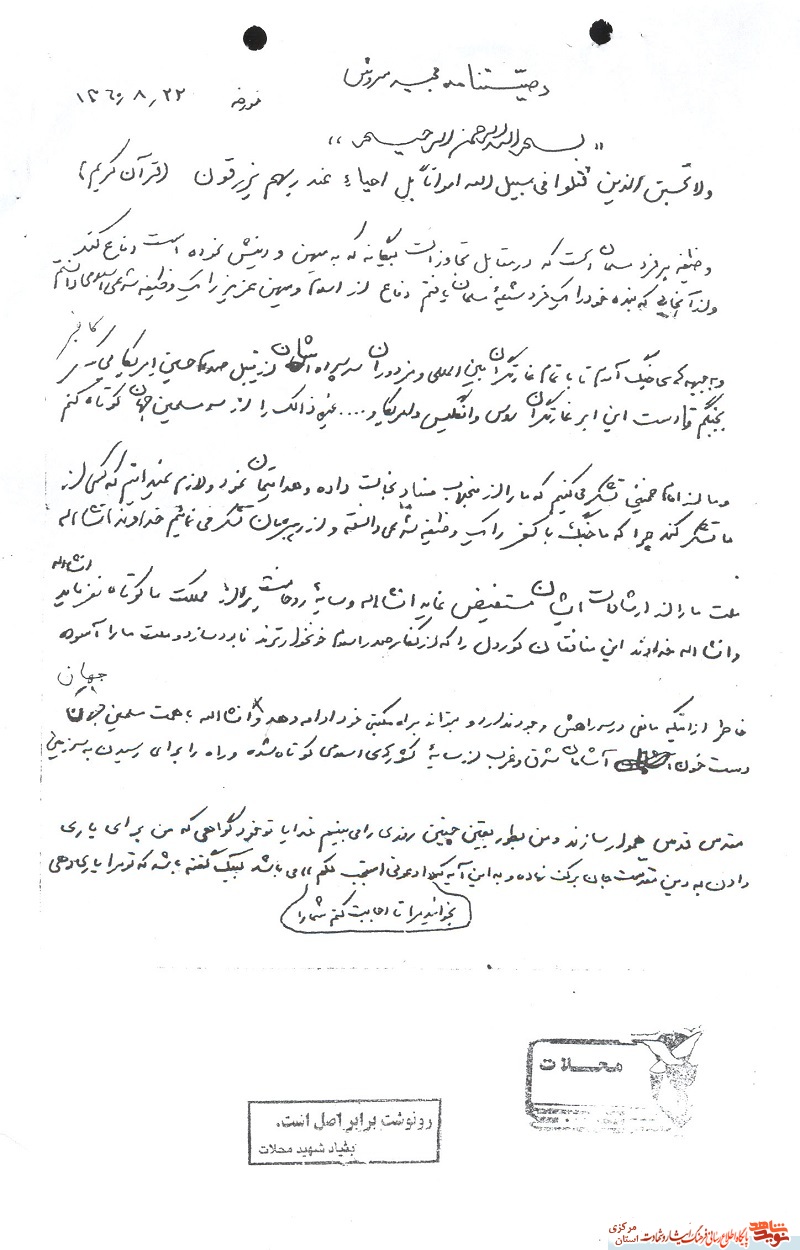 وصیتنامه مجید سروش
مورخه ۱۳۶۰/۸/۲۲
«بسم الله الرحمن الرحیم»
ولا تحسبن الذین قتلوا فی سبیل الله امواتا بل احیاء عند ربهم یرزقون (قرآن کریم)
وظیفه هر فرد مسلمان است که در مقابل تجاوزات بیگانه که به میهن و دینش نموده است دفاع کند
ولذا آنجایی که بنده خود را یک فرد شیعهٔ مسلمان یافتم دفاع از اسلام و میهن عزیز را یک وظیفه شرعی اسلامی دانستم
و به جبهه های جنگ آمدم تا با تمام غارتگران بین المللی و مزدوران سرسپرده اشان از قبیل صدام حسین امریکایی کافر
بجنگم تا دست این ابر غارتگران روس و انگلیس و امریکا و .... غیر ذالک را از سر مسلمین جهان کوتاه کنم
و ما از امام خمینی تشکر می کنیم که ما را از منجلاب فساد نجات داده و هدایتمان نمود و لازم نمیدانیم که کسی از
ما تشکر کند چرا که ما جنگ با کفر را یک وظیفه شرعی دانسته و از رهبرمان تشکر می نمائیم خداوند انشااله
ملت ما را از ارشادات ایشان مستفیض نماید انشااله و سایهٔ روحانیت را از مملکت ما کوتاه نفرماید انشااله
و انشااله خداوند این منافقان کوردل را که از کفار صدر اسلام خونخوارترند نابود سازد و ملت ما را آسوده
خاطر از اینکه مانعی در سر راهش وجود ندارد و بتواند براه مکتبی خود ادامه دهد و انشااله با همت مسلمین جهان
دست خون آشامان شرق و غرب از سایهٔ کشورهای اسلامی کوتاه شده و راه را برای رسیدن به سرزمین
مقدس قدس هموار سازند و من بطور یقین چنین روزی را می بینم خدایا تو خود گواهی که من برای یاری
دادن به دین مقدست جان بر کف نهاده و به این آیه که ادعونی استجب لکم می باشد لبیک گفته باشم که تو مرا یاری دهی
بخوانید مرا تا اجابت کنم شما را
محلات
رونوشت برابر اصل است.
بنیاد شهید محلات
نوید شاهد
پایگاه اطلاع رسانی فرهنگ ایثار و شهادت استان مرکزی